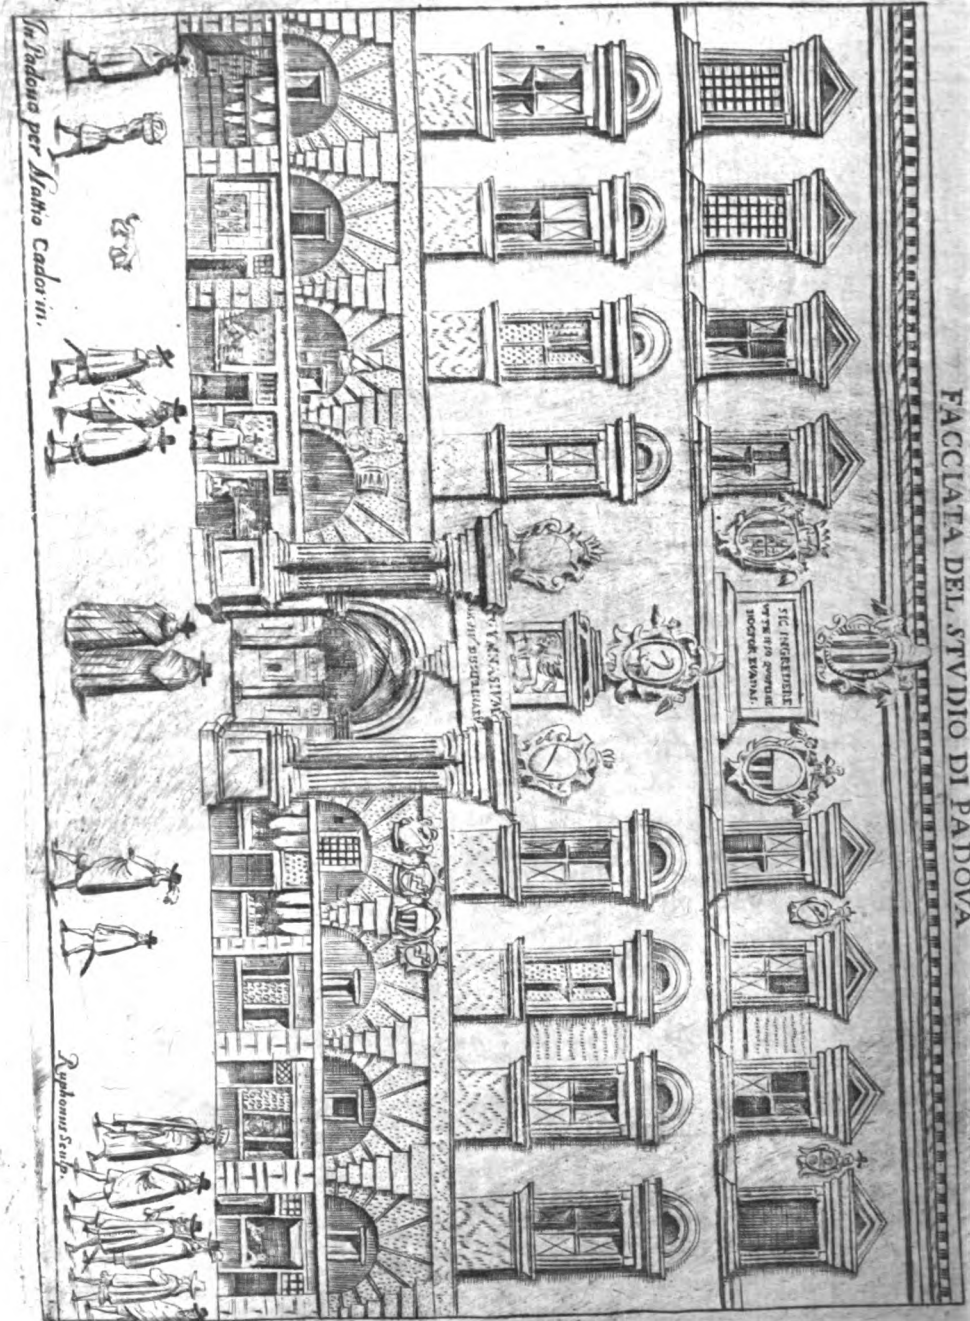 FACCIATA DEL STVDIO DI PADOVA
SIC INGREDERE
VT TE IPSO QVOTIDIE
DOCTIOR EVADAS.
GYMNASIVM
In Padoua per Mattio Cadorin.
Ruphonus Sculp.